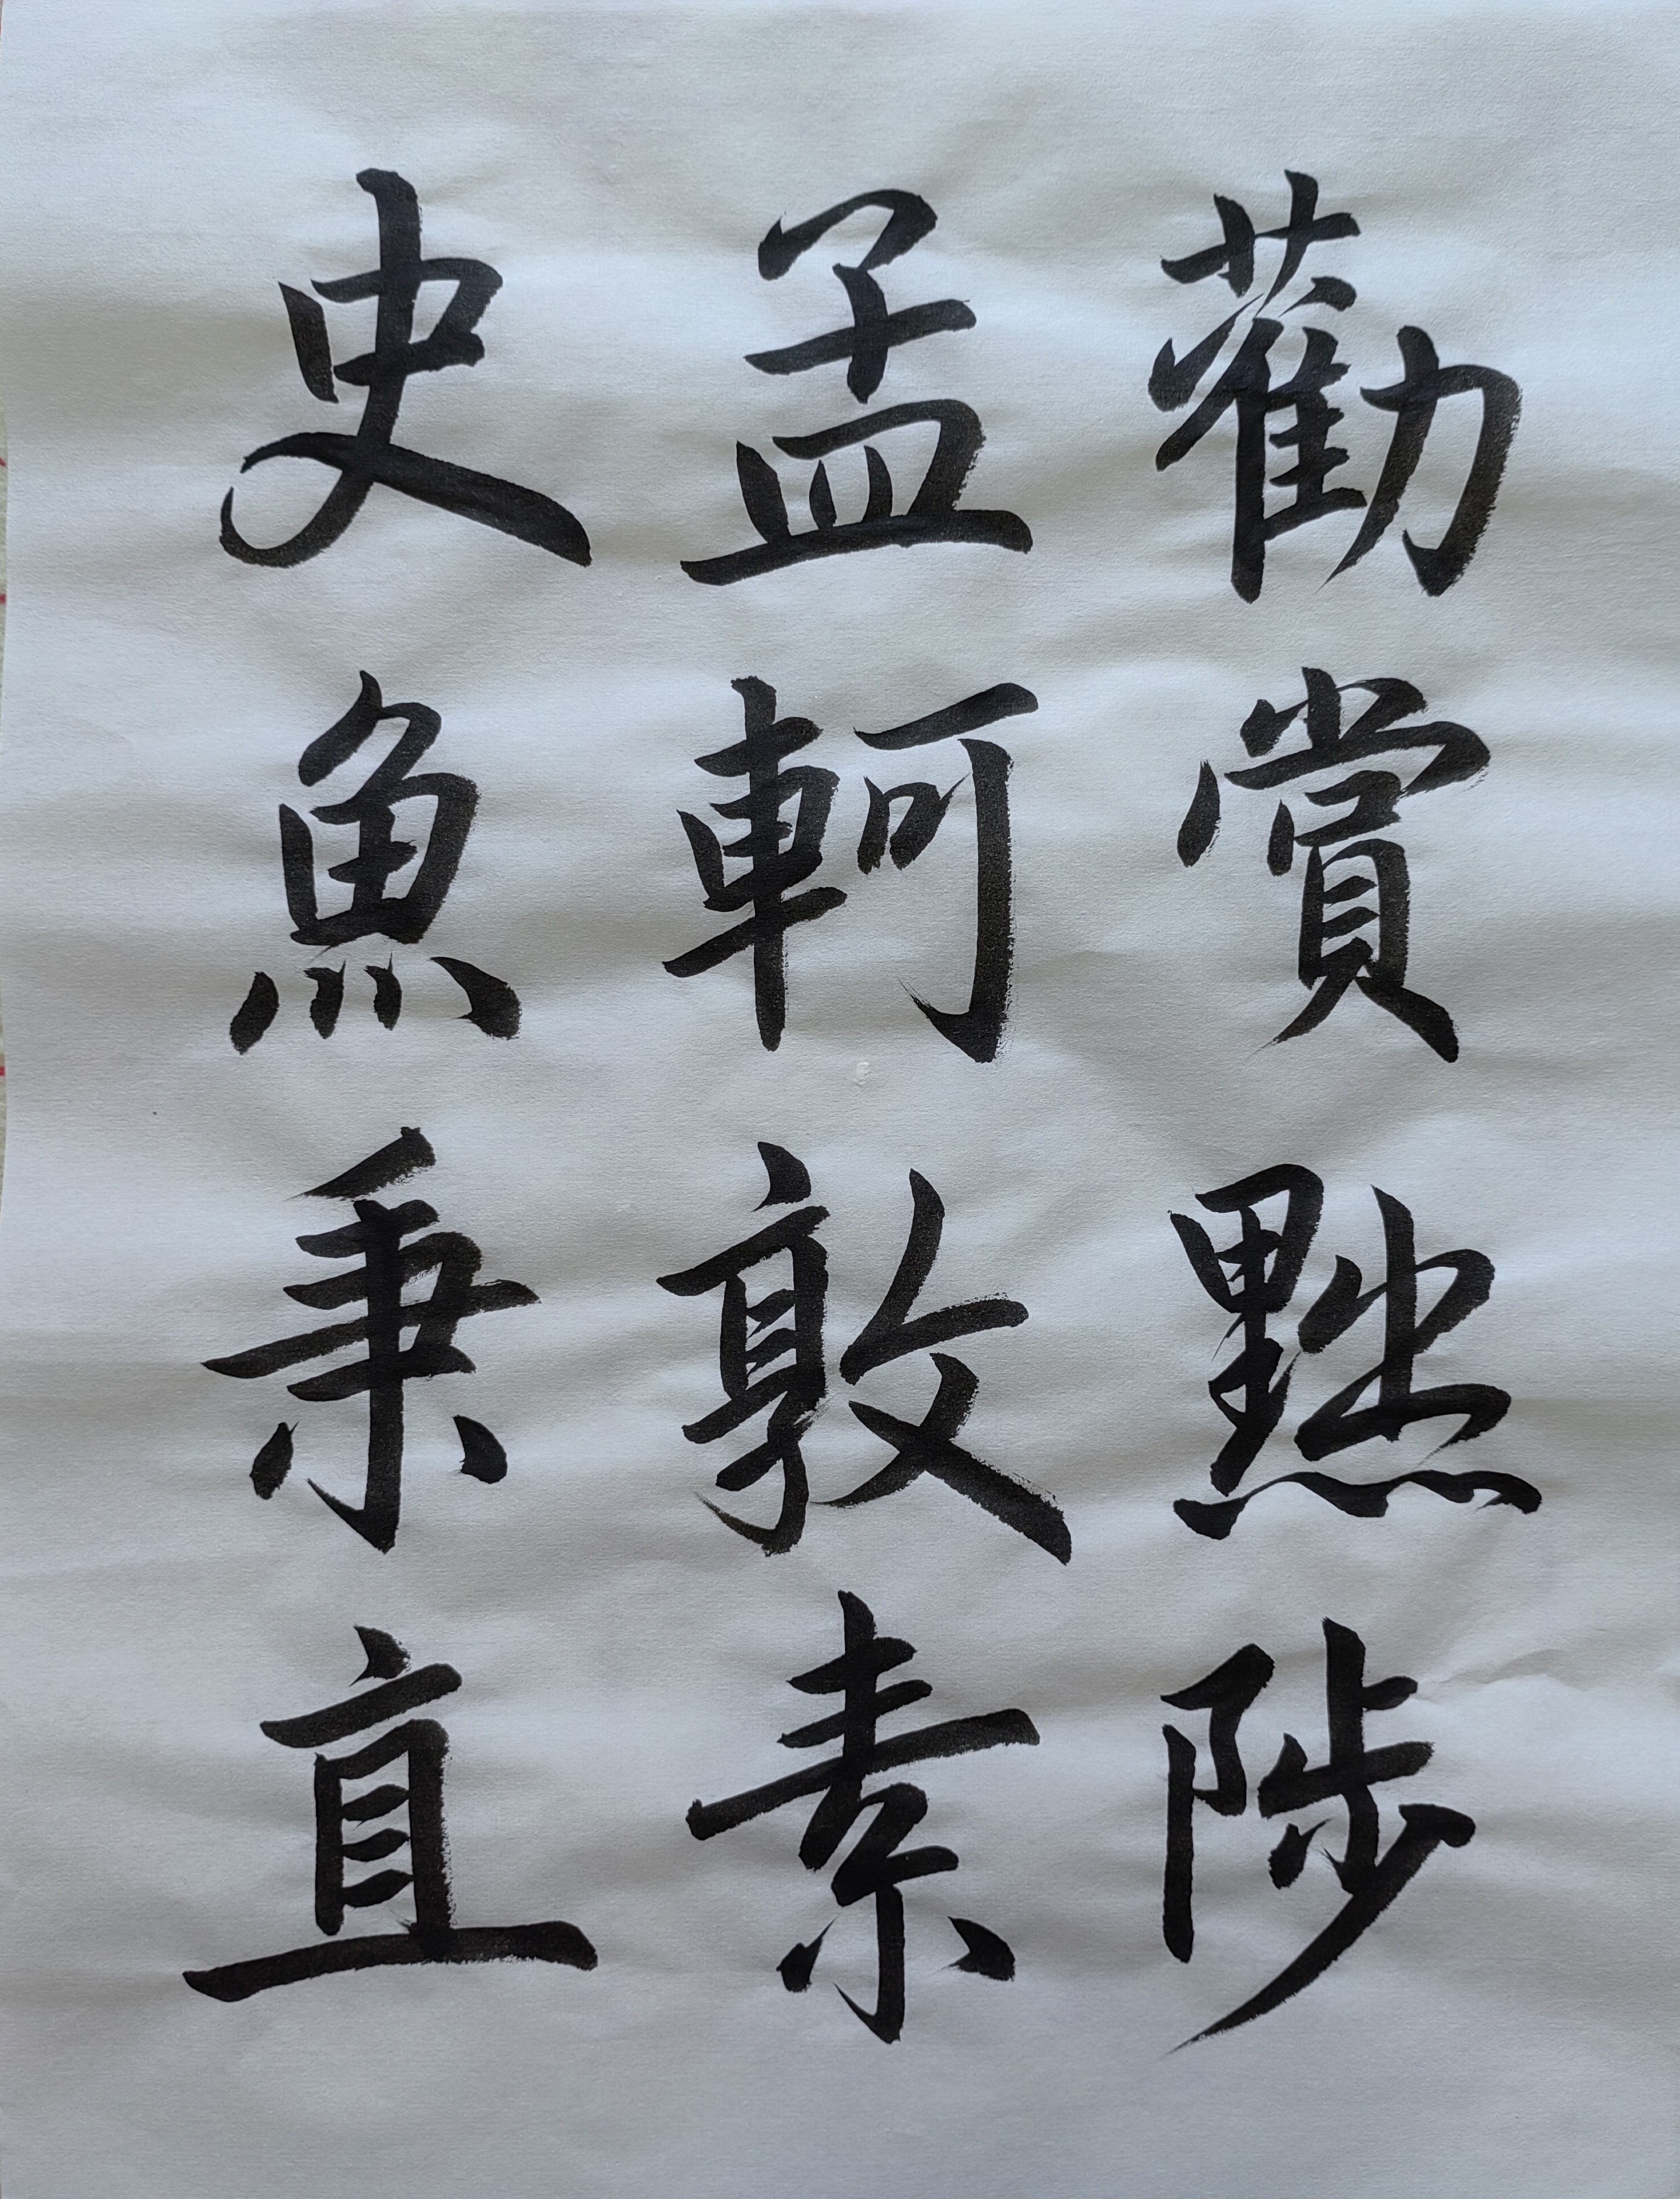 勸賞黜陟
孟軻敦素
史魚秉直